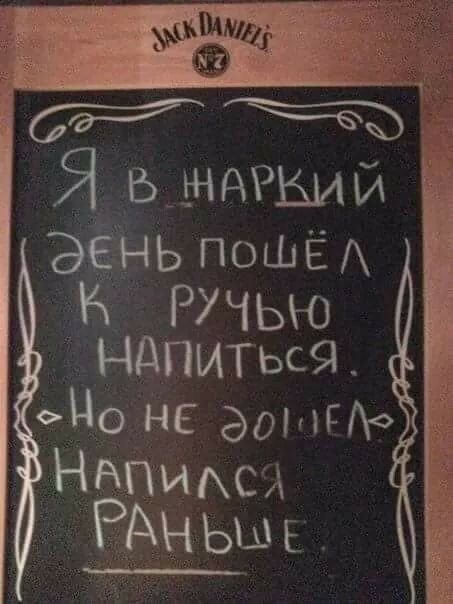 JACK DANIEL'S
Nº7
Я В ЖАРКИЙ
ДЕНЬ ПОШЁЛ
К РУЧЬЮ
НАПИТЬСЯ.
НО НЕ ДОШЕЛ.
НАПИЛСЯ
РАНЬШЕ.